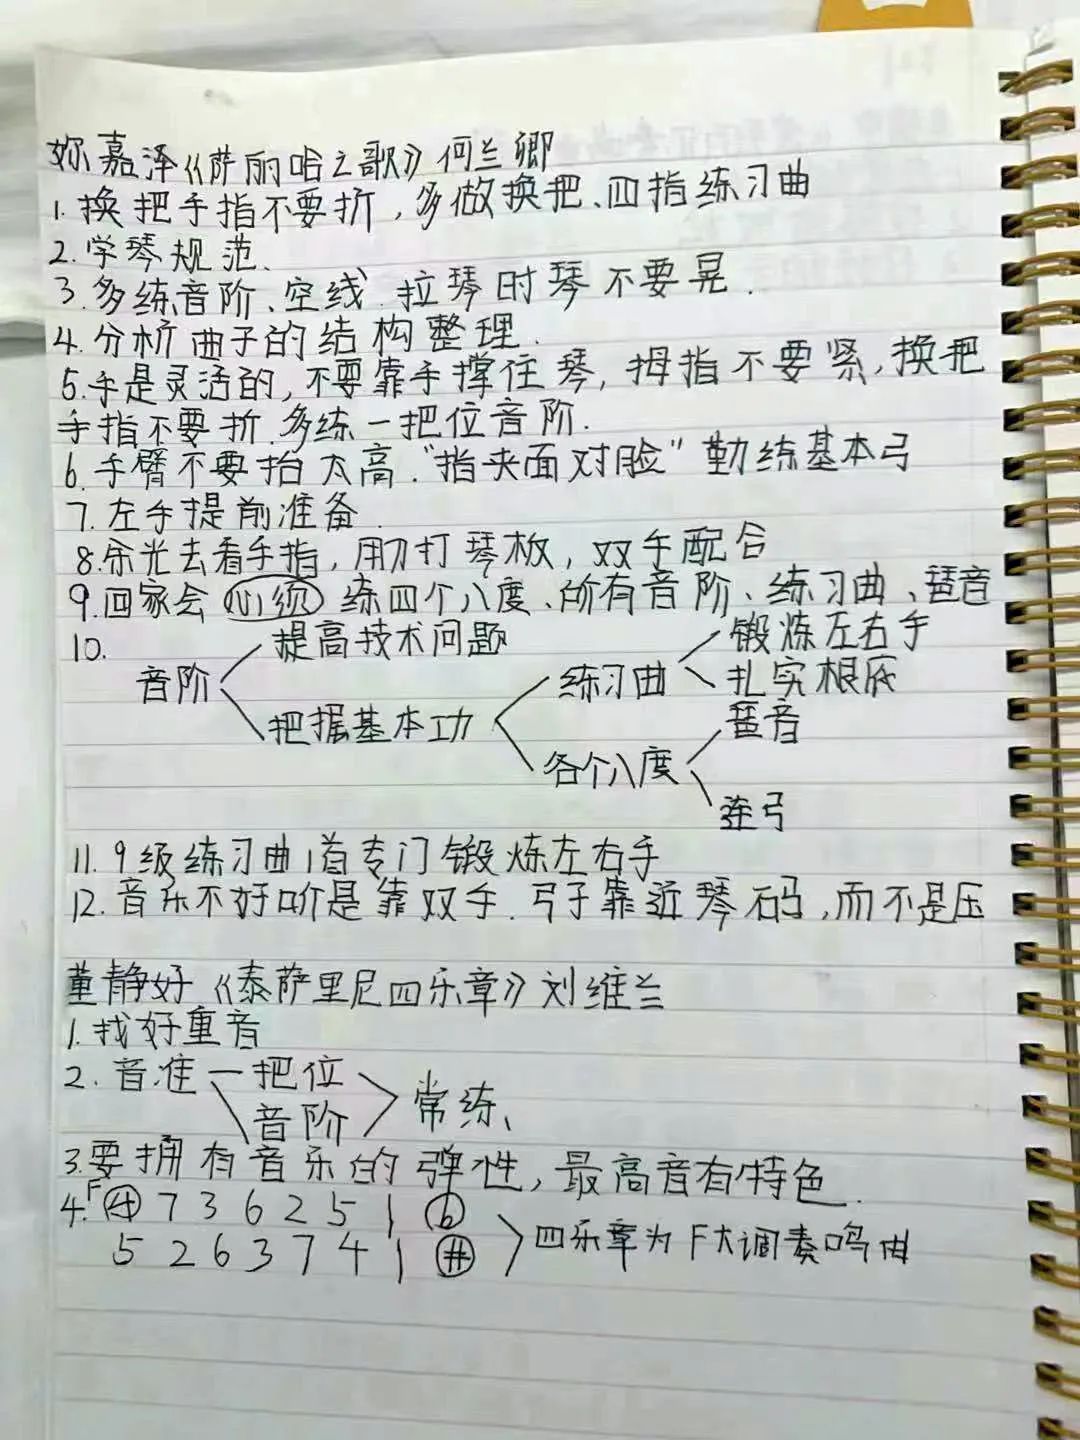 妳嘉泽《萨丽哈之歌》何兰卿
1.换把手指不要折,多做换把、四指练习曲
2.学琴规范、
3.多练音阶、空线.拉琴时琴不要晃.
4.分析曲子的结构整理.
5.手是灵活的,不要靠手撑住琴,拇指不要紧,换把
手指不要折.多练一把位音阶.
6.手臂不要抬太高."指夹面对脸"勤练基本弓
7.左手提前准备.
8.余光去看手指,用力打琴板,双手配合
9.回家会必须练四个八度、所有音阶、练习曲、琶音
10.
音阶 提高技术问题
把握基本功
练习曲 锻炼左右手
扎实根底
各个八度 琶音
连弓
11.9级练习曲1首专门锻炼左右手
12.音乐不好听是靠双手.弓子靠近琴码,而不是压
董静好《泰萨里尼四乐章》刘维兰
1.找好重音
2.音准 一把位
音阶 常练、
3.要拥有音乐的弹性,最高音有特色.
4.F④ 7 3 6 2 5 1 ⓑ
5 2 6 3 7 4 1 # 四乐章为F大调奏鸣曲